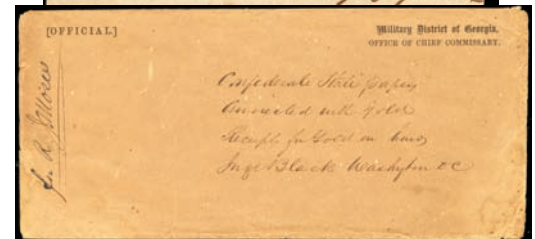 [OFFICIAL.]
Military District of Georgia,
OFFICE OF CHIEF COMMISSARY.
Confederate State papers
Connected with Gold
Receipt for Gold on
Black Washington